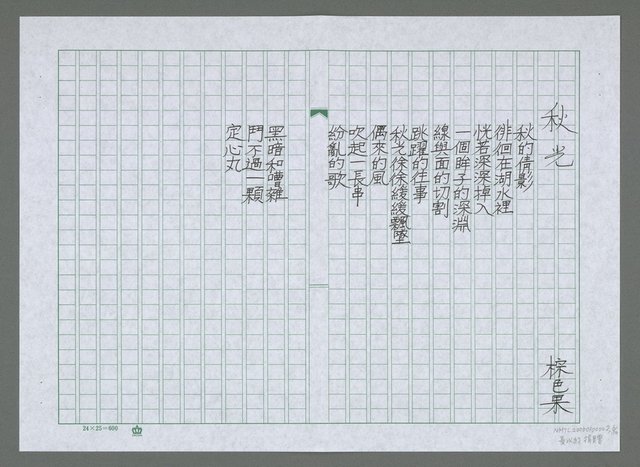 秋光
棕色果
秋的倩影
徘徊在湖水裡
恍若深深掉入
一個眸子的深淵
線與面的切割
跳躍的往事
秋光徐徐緩緩飄墜
偶來的風
吹起一長串
紛亂的歌
黑暗和嘈雜
鬥不過一顆
定心丸
24×25=600